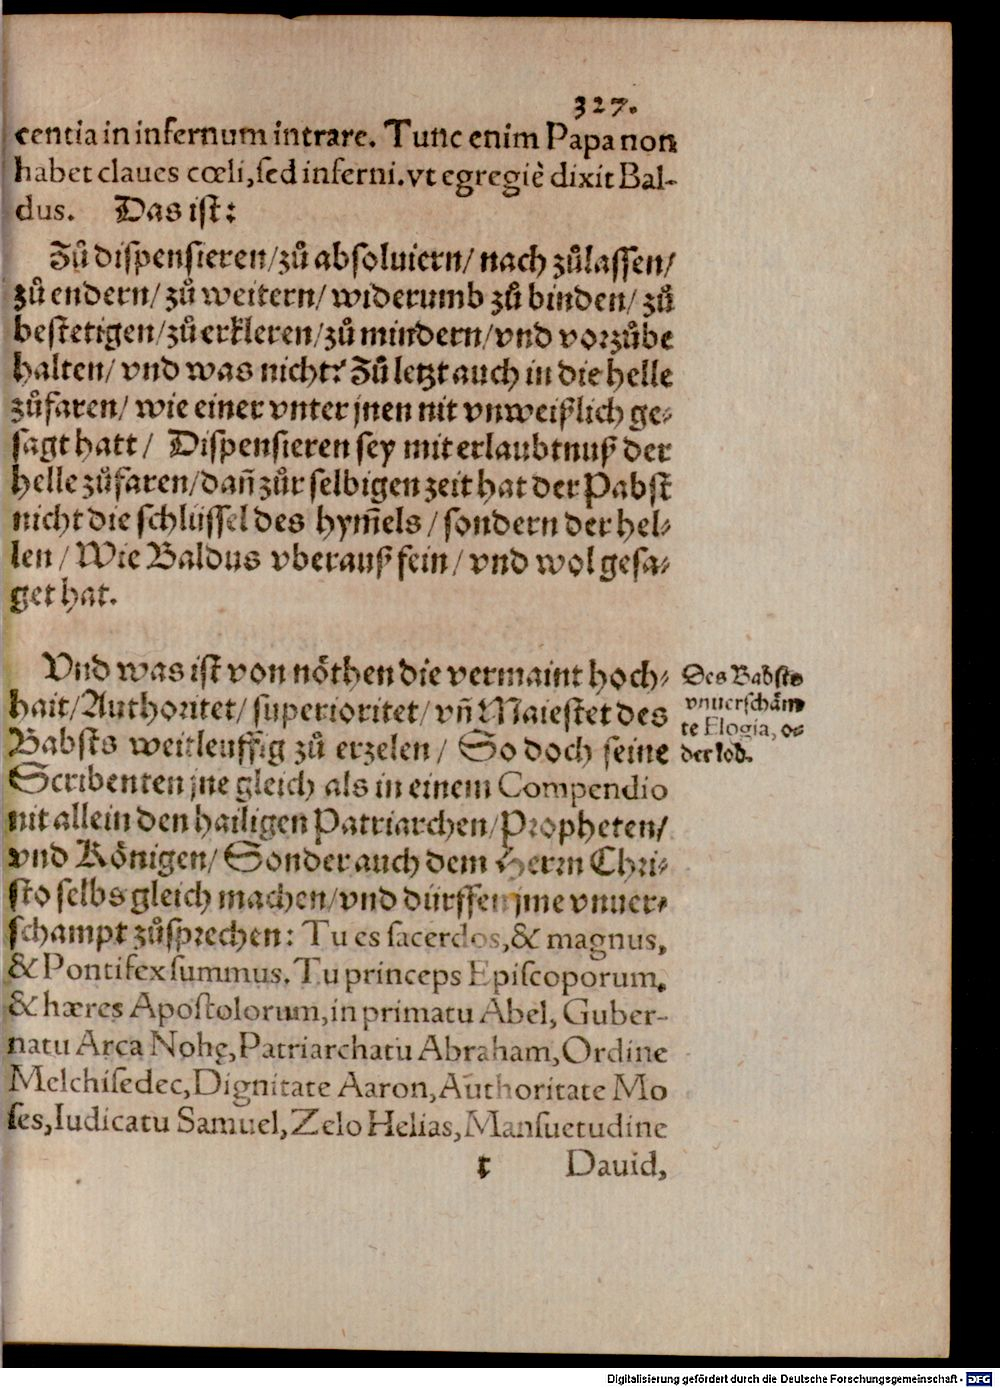 327.
centia in infernum intrare. Tunc enim Papa non
habet claues cœli, ſed inferni. vt egregiè dixit Bal-
dus. Das iſt:
Zů diſpenſieren/ zů abſoluiern/ nach zůlaſſen/
zů endern/ zů weitern/ widerumb zů binden/ zů
beſtetigen/ zů erkleren/ zů mindern/ vnd vorzůbe
halten/ vnd was nicht? Zů letzt auch in die helle
zůfaren/ wie einer vnter jnen nit vnweißlich ge⸗
ſagt hatt/ Diſpenſieren ſey mit erlaubtnuß der
helle zůfaren/ dañ zůr ſelbigen zeit hat der Pabſt
nicht die ſchlüſſel des hym̃els/ ſondern der hel⸗
len/ Wie Baldus vberauß fein/ vnd wol geſa⸗
get hat.
Vnd was iſt von nöthen die vermaint hoch⸗
hait/ Authoritet/ ſuperioritet/ vñ Maieſtet des
Babſts weitleuffig zů erzelen/ So doch ſeine
Scribenten jne gleich als in einem Compendio
nit allein den hailigen Patriarchen/ Propheten/
vnd Königen/ Sonder auch dem Herrn Chri⸗
ſto ſelbs gleich machen/ vnd dürffen jme vnuer⸗
ſchampt zůſprechen: Tu es ſacerdos, & magnus,
& Pontifex ſummus. Tu princeps Epiſcoporum,
& hæres Apoſtolorum, in primatu Abel, Guber-
natu Arca Nohę, Patriarchatu Abraham, Ordine
Melchiſedec, Dignitate Aaron, Authoritate Mo
ſes, Iudicatu Samuel, Zelo Helias, Manſuetudine
t Dauid,
Des Babſts
vnuerſchäm
te Elogia, o⸗
der lob.
Digitalisierung gefördert durch die Deutsche Forschungsgemeinschaft - DFG